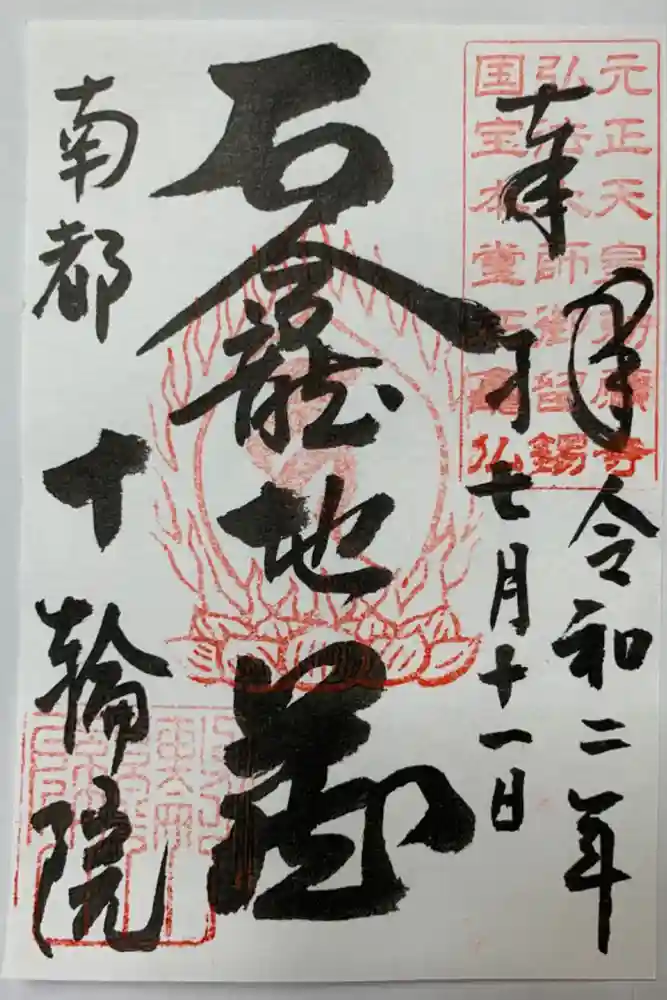 元正天皇勅願寺
弘法大師御留錫
国宝本堂石龕仏
奉拝
令和二年
七月十一日
石龕地蔵
南都十輪院